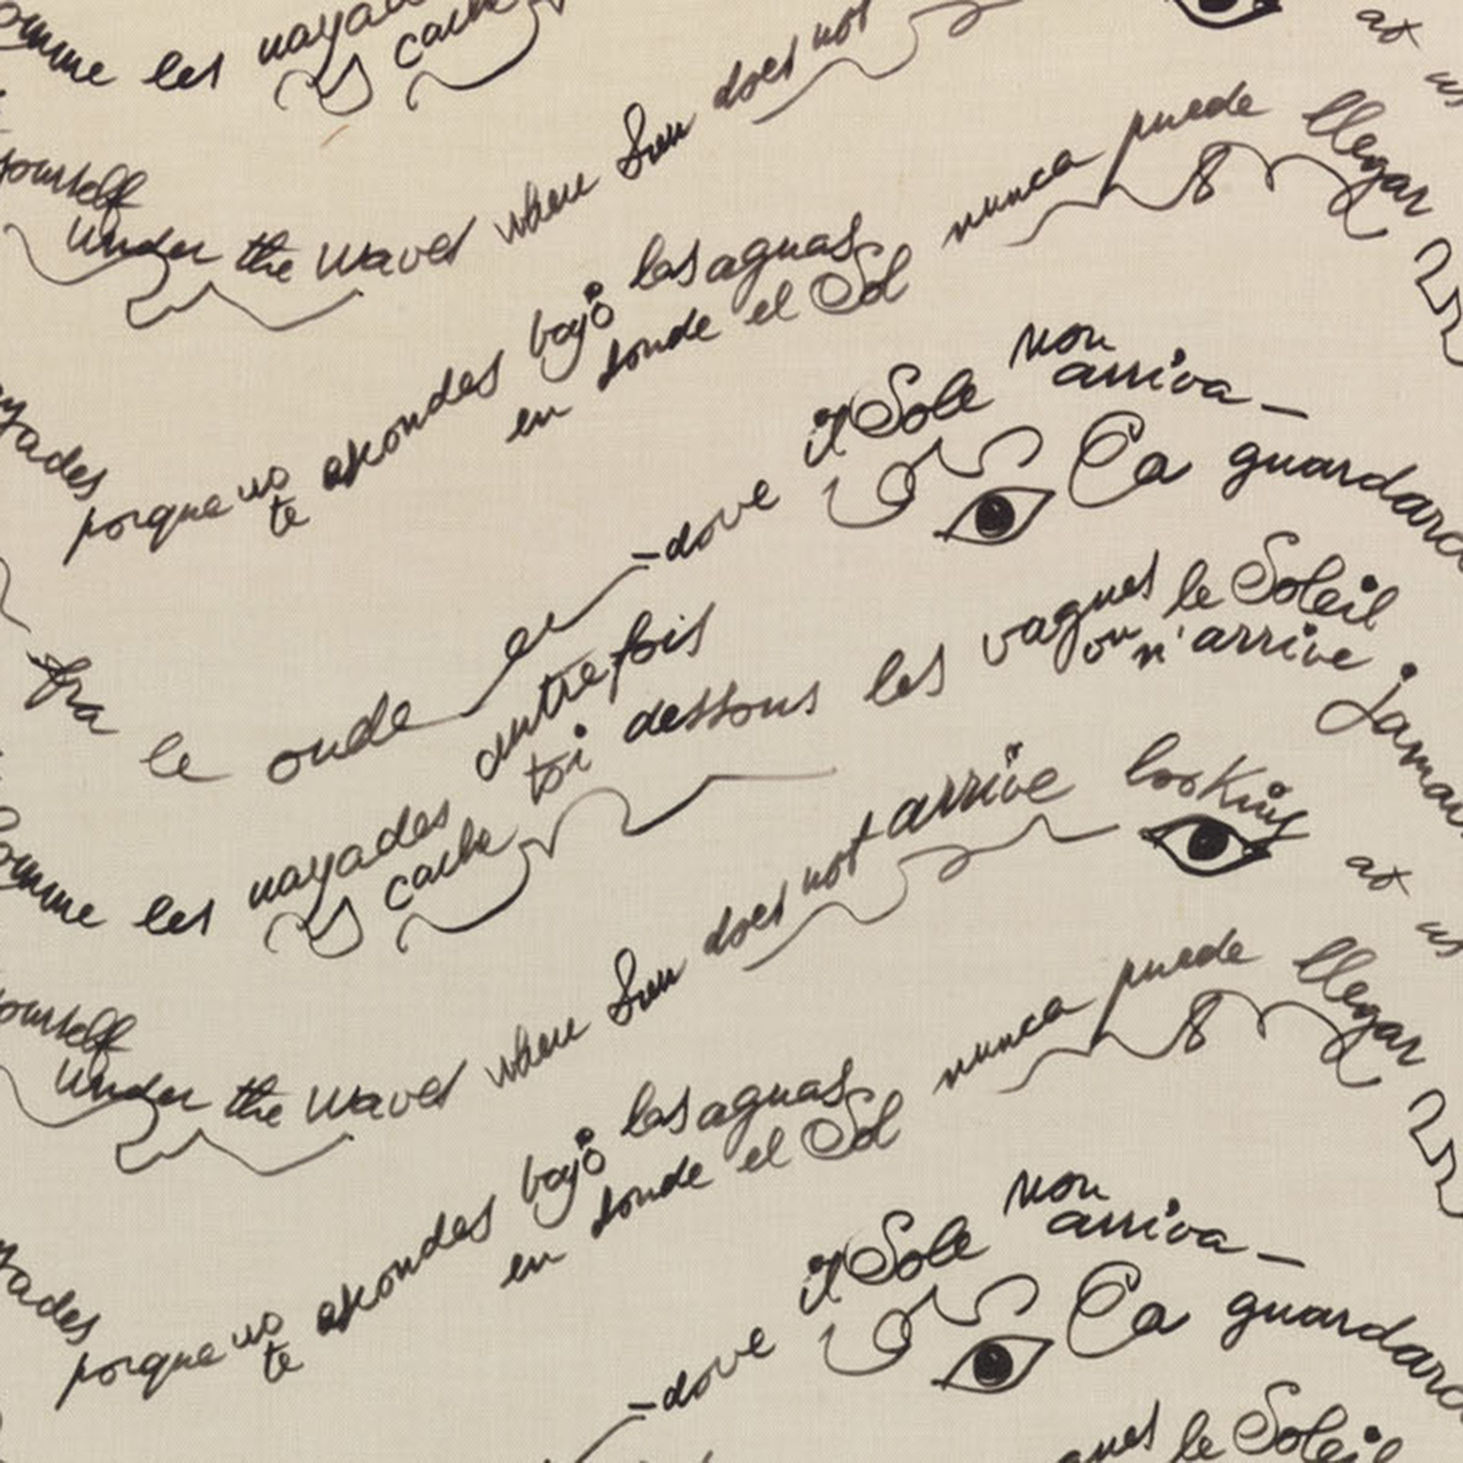 comme les nayades
cache
does not
at us
yourself
under the waves where Sun
nunca puede llegar
porque no te escondes bajo las aguas
en donde el Sol
yades
fra le onde e - dove il Sole non arriva -
Ca guardare
autrefois
comme les nayades cache toi dessous les vagues
ou le Soleil n'arrive jamais
yourself
under the waves where Sun does not arrive looking at us
nunca puede llegar
porque no te escondes bajo las aguas
en donde el Sol
yades
- dove il Sole non arriva -
Ca guardare
gues le Soleil